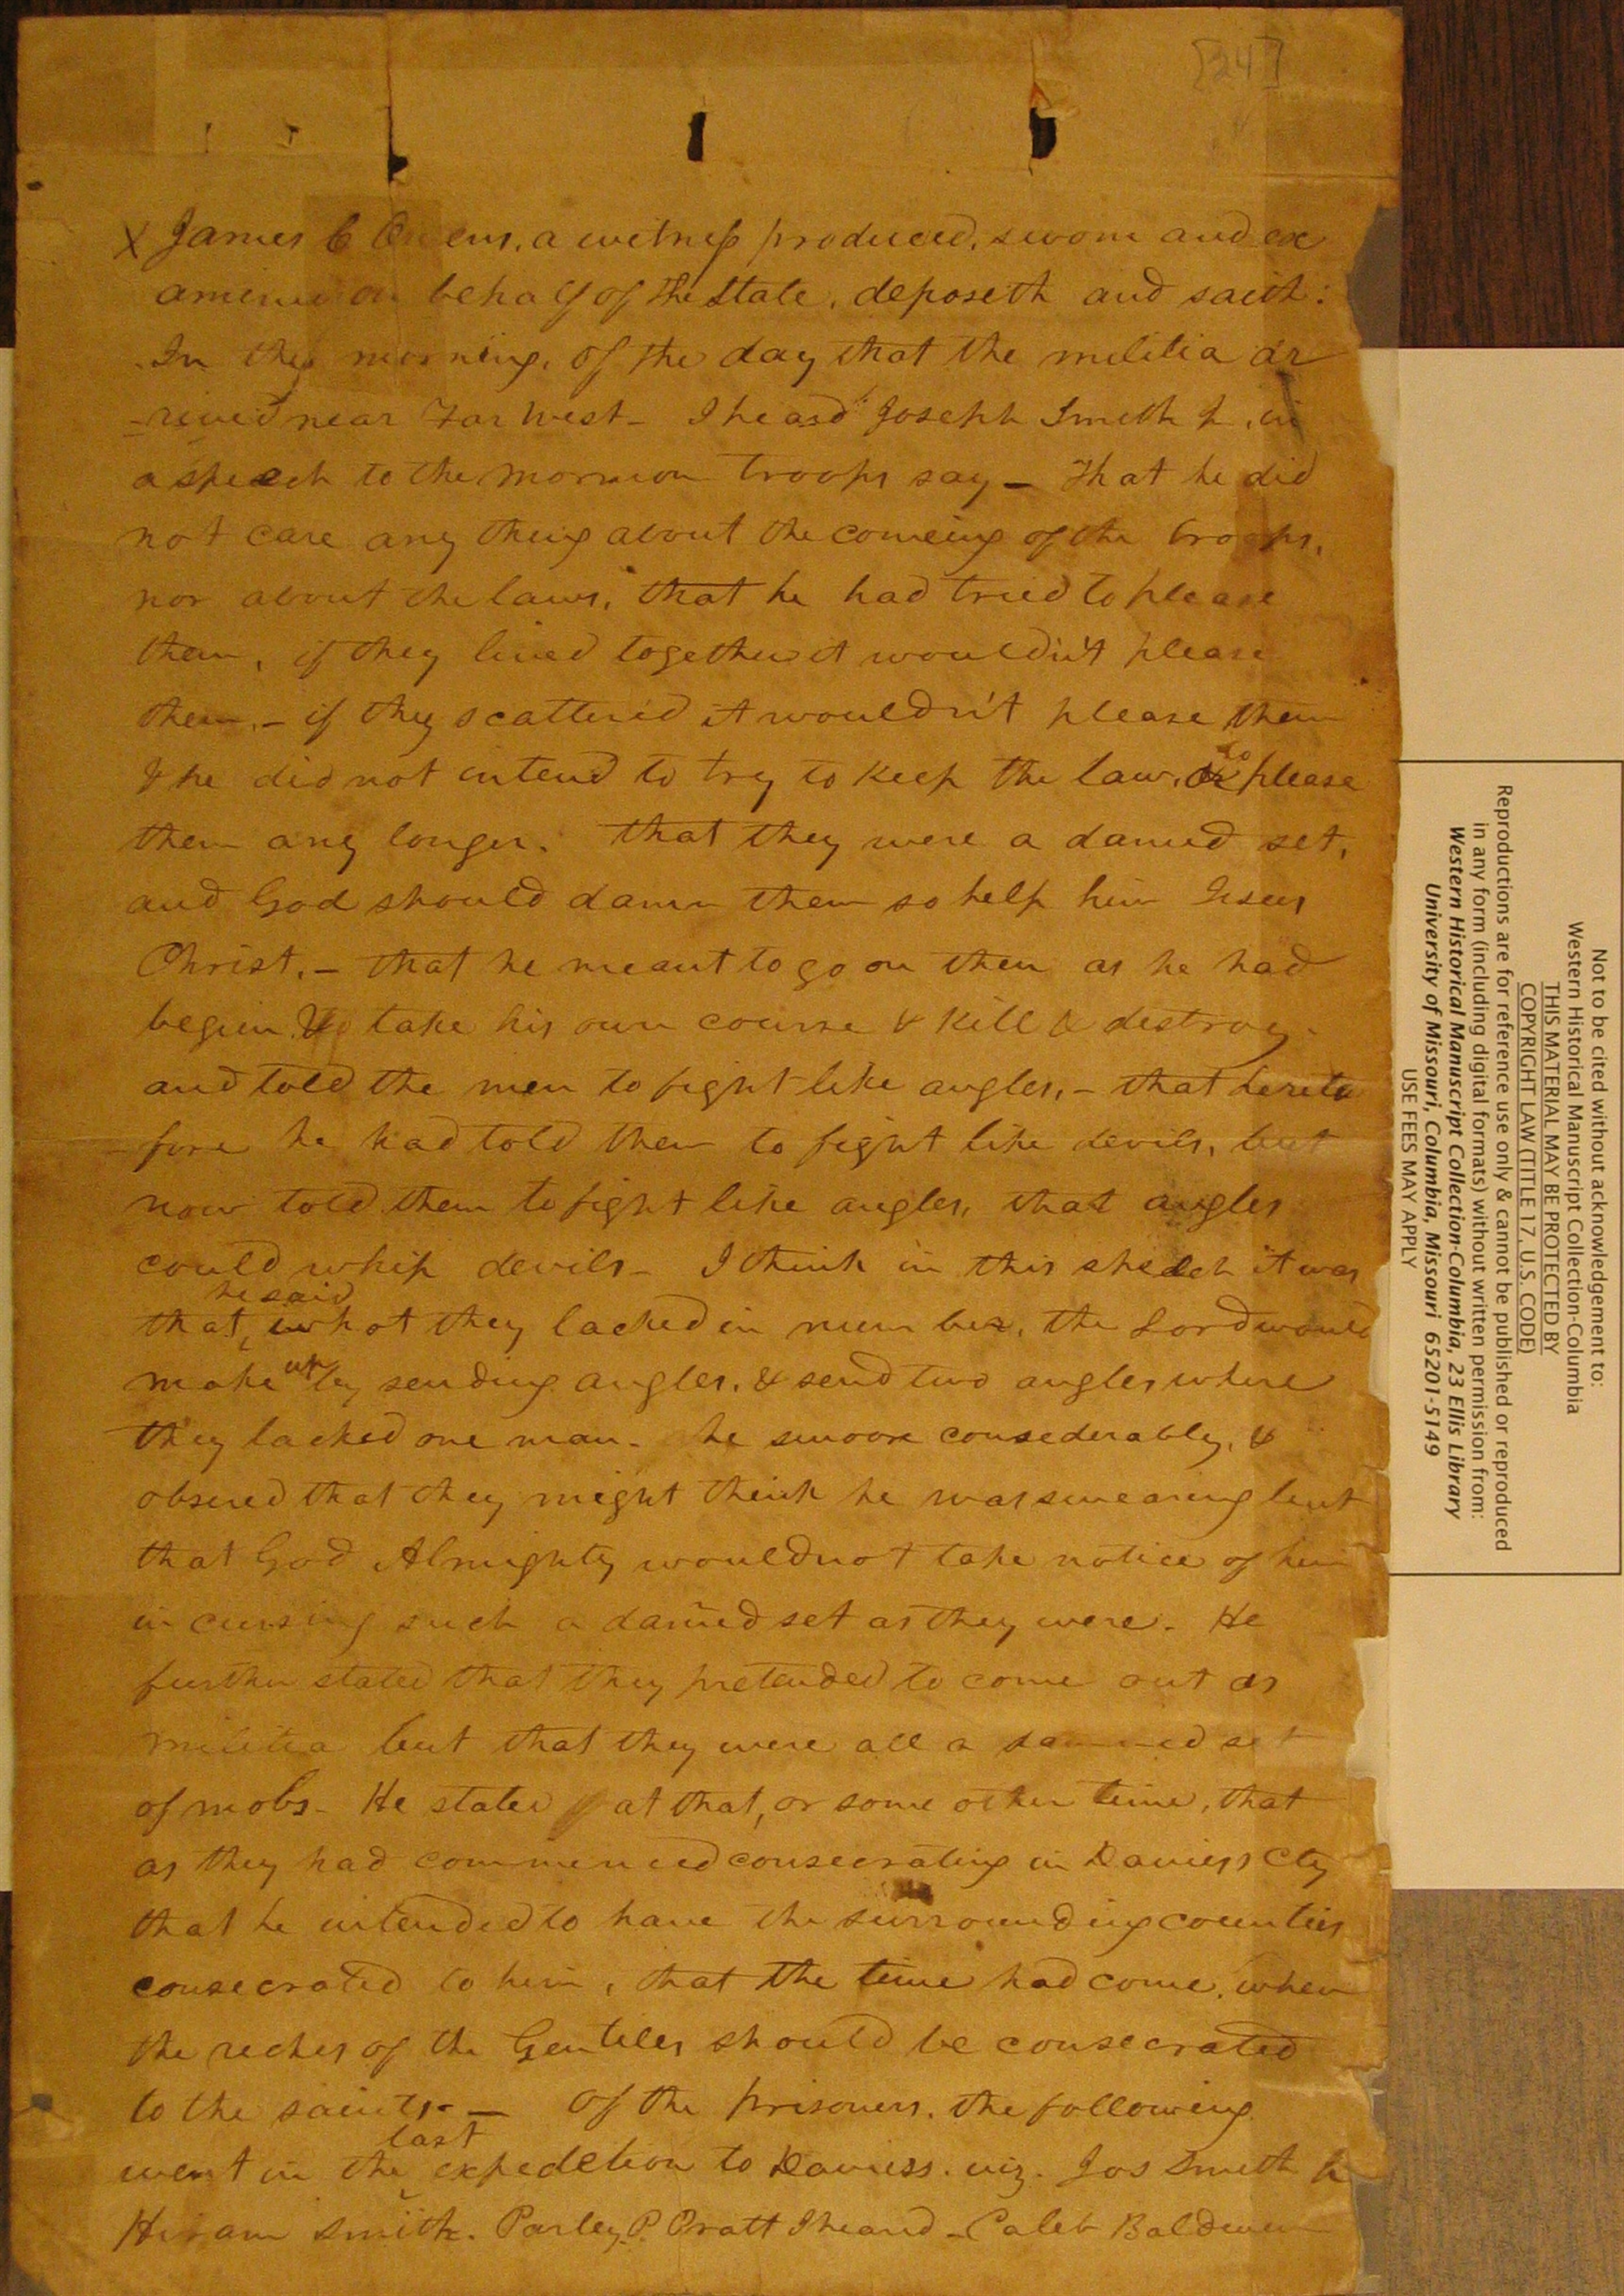 [24]
X James C Owens, a witness produced, sworn and ex
amined on behalf of the State, deposeth and saith:
In the morning, of the day that the militia ar
-rived near Far West - I heard Joseph Smith Jr. in
a speech to the mormon troops say - That he did
not care any thing about the comeing of the troops,
nor about the laws, that he had tried to please
them, if they lived together it wouldn't please
them, - if they scattered it wouldn't please them
& he did not intend to try to keep the law, or to please
them any longer. That they were a damed set,
and God should damn them so help him Jesus
Christ. - that he meant to go on then as he had
begun & take his own course & kill & destroy
and told the men to fight like angles, - that hereto
fore he had told them to fight like devils, but
now told them to fight like angles, that angles
could whip devils - I think in this speech it was
that, he said what they lacked in number, the Lord would
make up by sending angles, & send two angles where
they lacked one man. he swoore consederably, &
obsered that they might think he was swearing but
that God Almighty would not take notice of him
in cursing such a damed set as they were. He
further stated that they pretended to come out as
militia but that they were all a damned set
of mobs - He stated at that, or some other time, that
as they had commenced consecrating in Daviess Cty
that he intended to have the surrounding counties
consecrated to him, that the time had come, when
the reches of the Gentiles should be consecrated
to the saints. - Of the prisoners, the following
went in the last expedetion to Daviess. viz. Jos Smith Jr
Hiram Smith. Parley P. Pratt I heard - Caleb Baldwin
Not to be cited without acknowledgement to:
Western Historical Manuscript Collection-Columbia
THIS MATERIAL MAY BE PROTECTED BY
COPYRIGHT LAW (TITLE 17, U.S. CODE)
Reproductions are for reference use only & cannot be published or reproduced
in any form (including digital formats) without written permission from:
Western Historical Manuscript Collection-Columbia, 23 Ellis Library
University of Missouri, Columbia, Missouri 65201-5149
USE FEES MAY APPLY